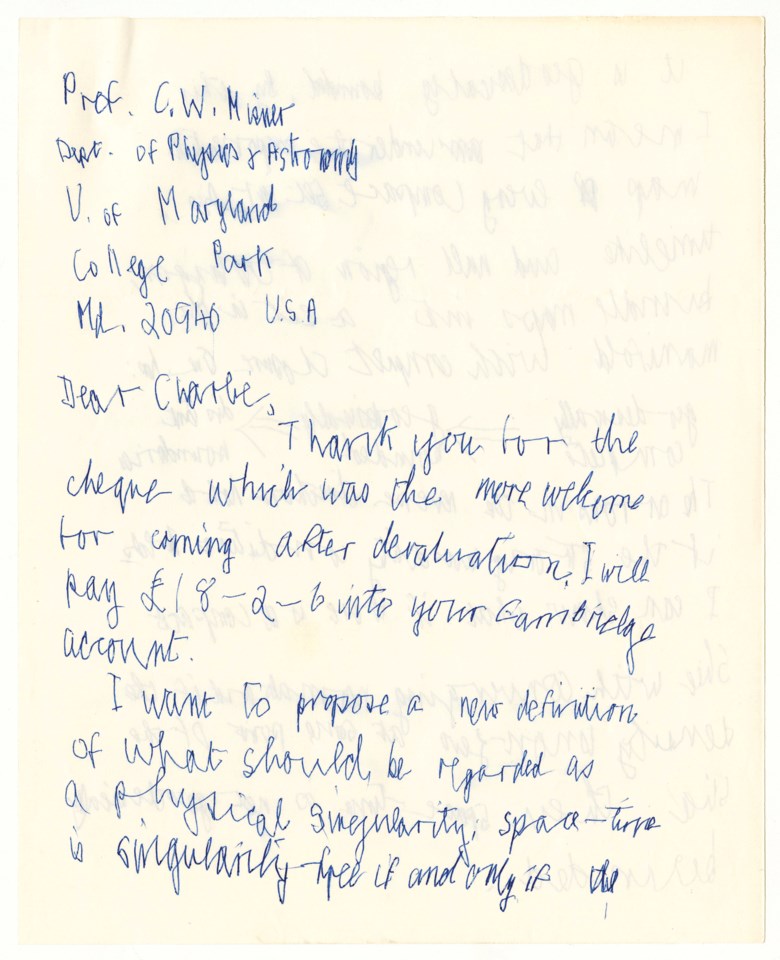 Prof. C.W. Misner
Dept. of Physics & Astronomy
U. of Maryland
College Park
Md. 20940 U.S.A
Dear Charlie,
Thank you for the
cheque which was the more welcome
for coming after devaluation. I will
pay £18-2-6 into your Cambridge
account.
I want to propose a new definition
of what should be regarded as
a physical singularity; space-time
is singularity-free if and only if the